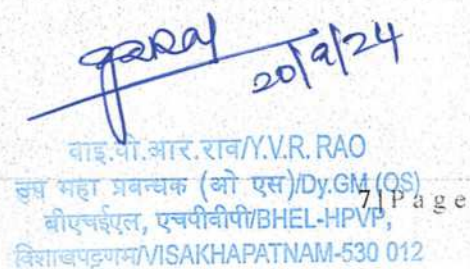 20/9/24
वाइ.वी.आर.राव/Y.V.R. RAO
उप महा प्रबन्धक (ओ एस)/Dy.GM (OS)
7 | P a g e
बीएचईएल, एचपीवीपी/BHEL-HPVP,
विशाखपट्टणम/VISAKHAPATNAM-530 012